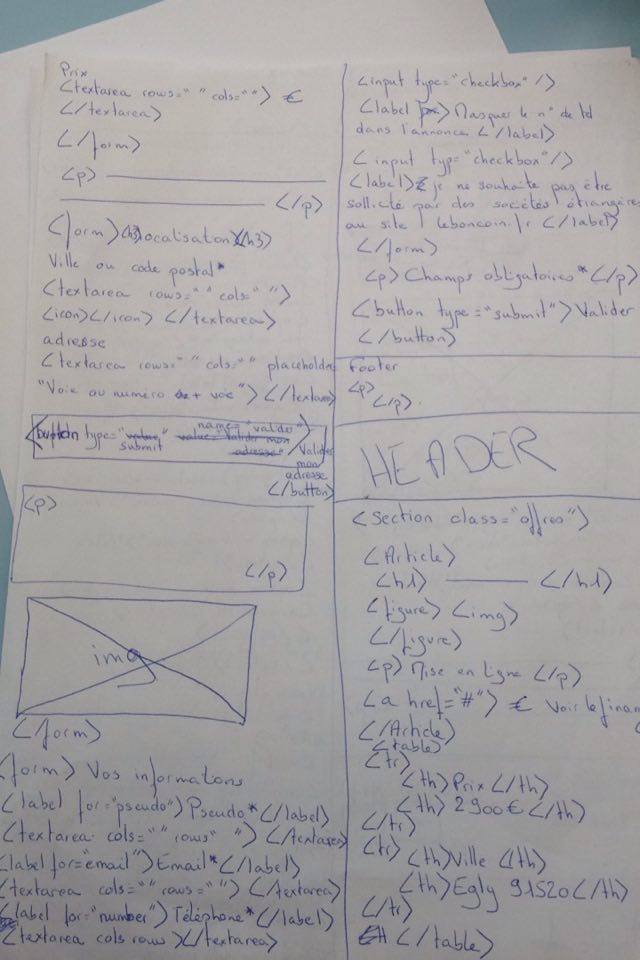 Prix
<textarea rows=" " cols=""> €
</textarea>
</form>
<p>
</p>
<form> <h3>localisation</h3>
Ville ou code postal*
<textarea rows=" " cols=" ">
<icon></icon> </textarea>
adresse
<textarea rows=" " cols=" " placeholder
"Voie ou numéro + voie"> </textarea>
<button type="submit" name="valider"> Valider
mon
adresse
</button>
<p>
</p>
img
</form>
<form> Vos informations
<label for="pseudo"> Pseudo*</label>
<textarea cols=" " rows" "> </textarea>
<label for="email">Email*</label>
<textarea cols=" " rows=" "> </textarea>
<label for="number"> Téléphone*</label>
<textarea cols rows></textarea>
<input type="checkbox"/>
<label> Masquer le n° de td
dans l'annonce </label>
<input typ="checkbox"/>
<label> je ne souhaite pas être
sollicité par des sociétés étrangères
au site leboncoin.fr </label>
</form>
<p> Champs obligatoires*</p>
<button type="submit"> Valider
</button>
Footer
<p>
</p>
HEADER
<section class="offres">
<Article>
<h1> </h1>
<figure> <img>
</figure>
<p> Mise en ligne </p>
<a href="#"> € Voir le finan
</Article>
<table>
<tr>
<th> Prix </th>
<th> 2900€ </th>
</tr>
<tr>
<th> Ville </th>
<th> Egly 91520 </th>
</tr>
</table>